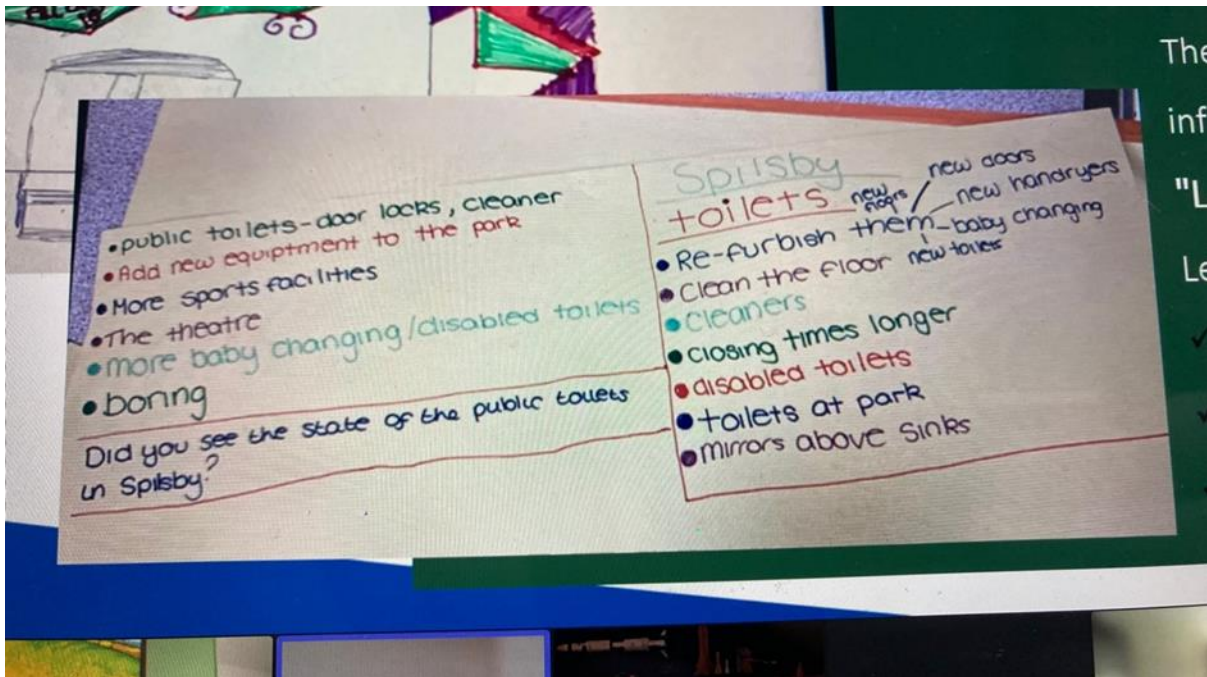 The
inf
"L
Le
•public toilets-door locks, cleaner
•Add new equiptment to the park
•More sports facilities
•The theatre
•more baby changing/disabled toilets
•boring
Did you see the state of the public toilets
in Spilsby?
Spilsby
toilets
•Re-furbish them
new floors
new doors
new handryers
baby changing
new toilets
•Clean the floor
•cleaners
•closing times longer
•disabled toilets
•toilets at park
•mirrors above sinks